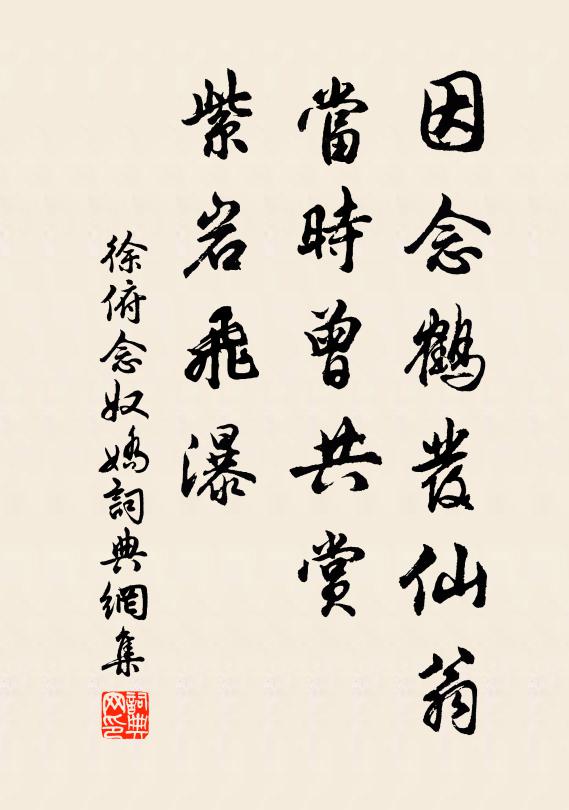 因念鶴發仙翁
當時曾共賞
紫岩飛瀑
徐俯念奴嬌詞典網集
詞典网印